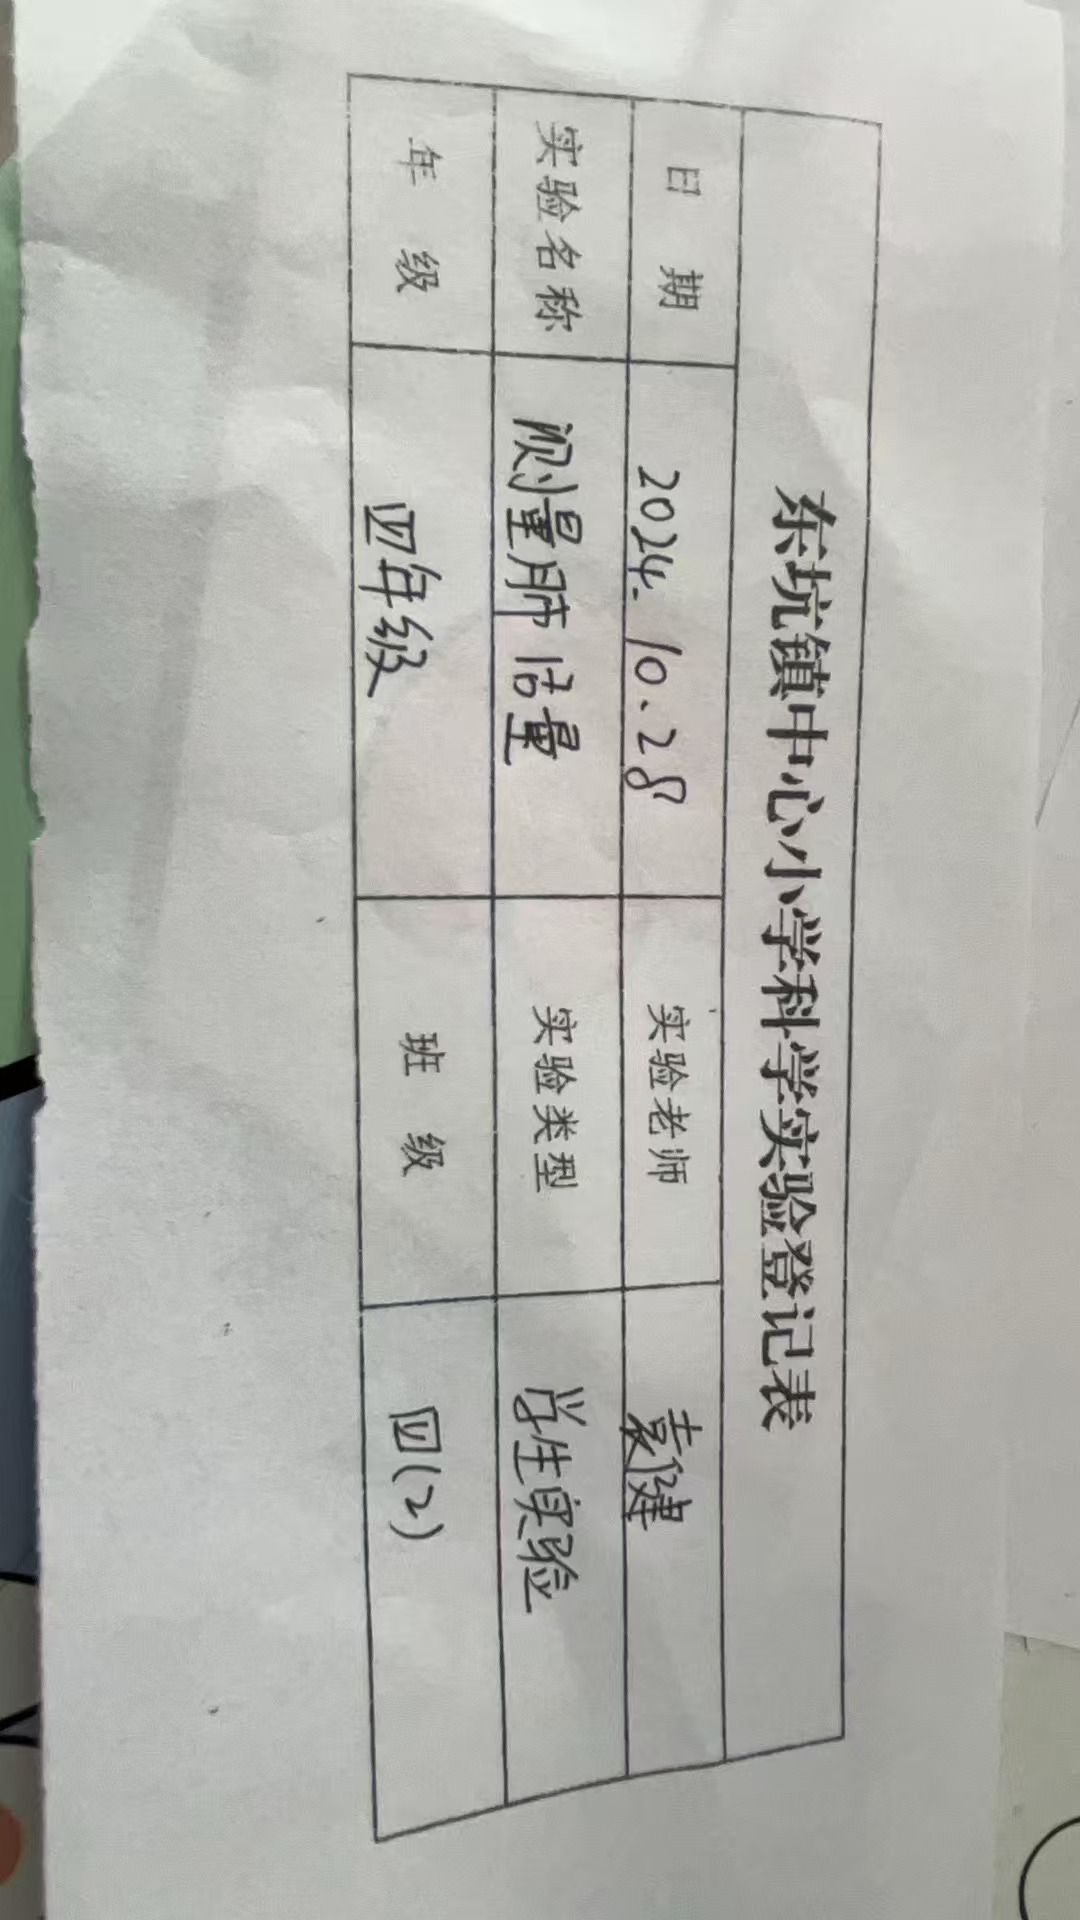 东坑镇中心小学科学实验登记表
日期 2024.10.28 实验老师 袁健
实验名称 测量肺活量 实验类型 学生实验
年级 四年级 班级 四(2)